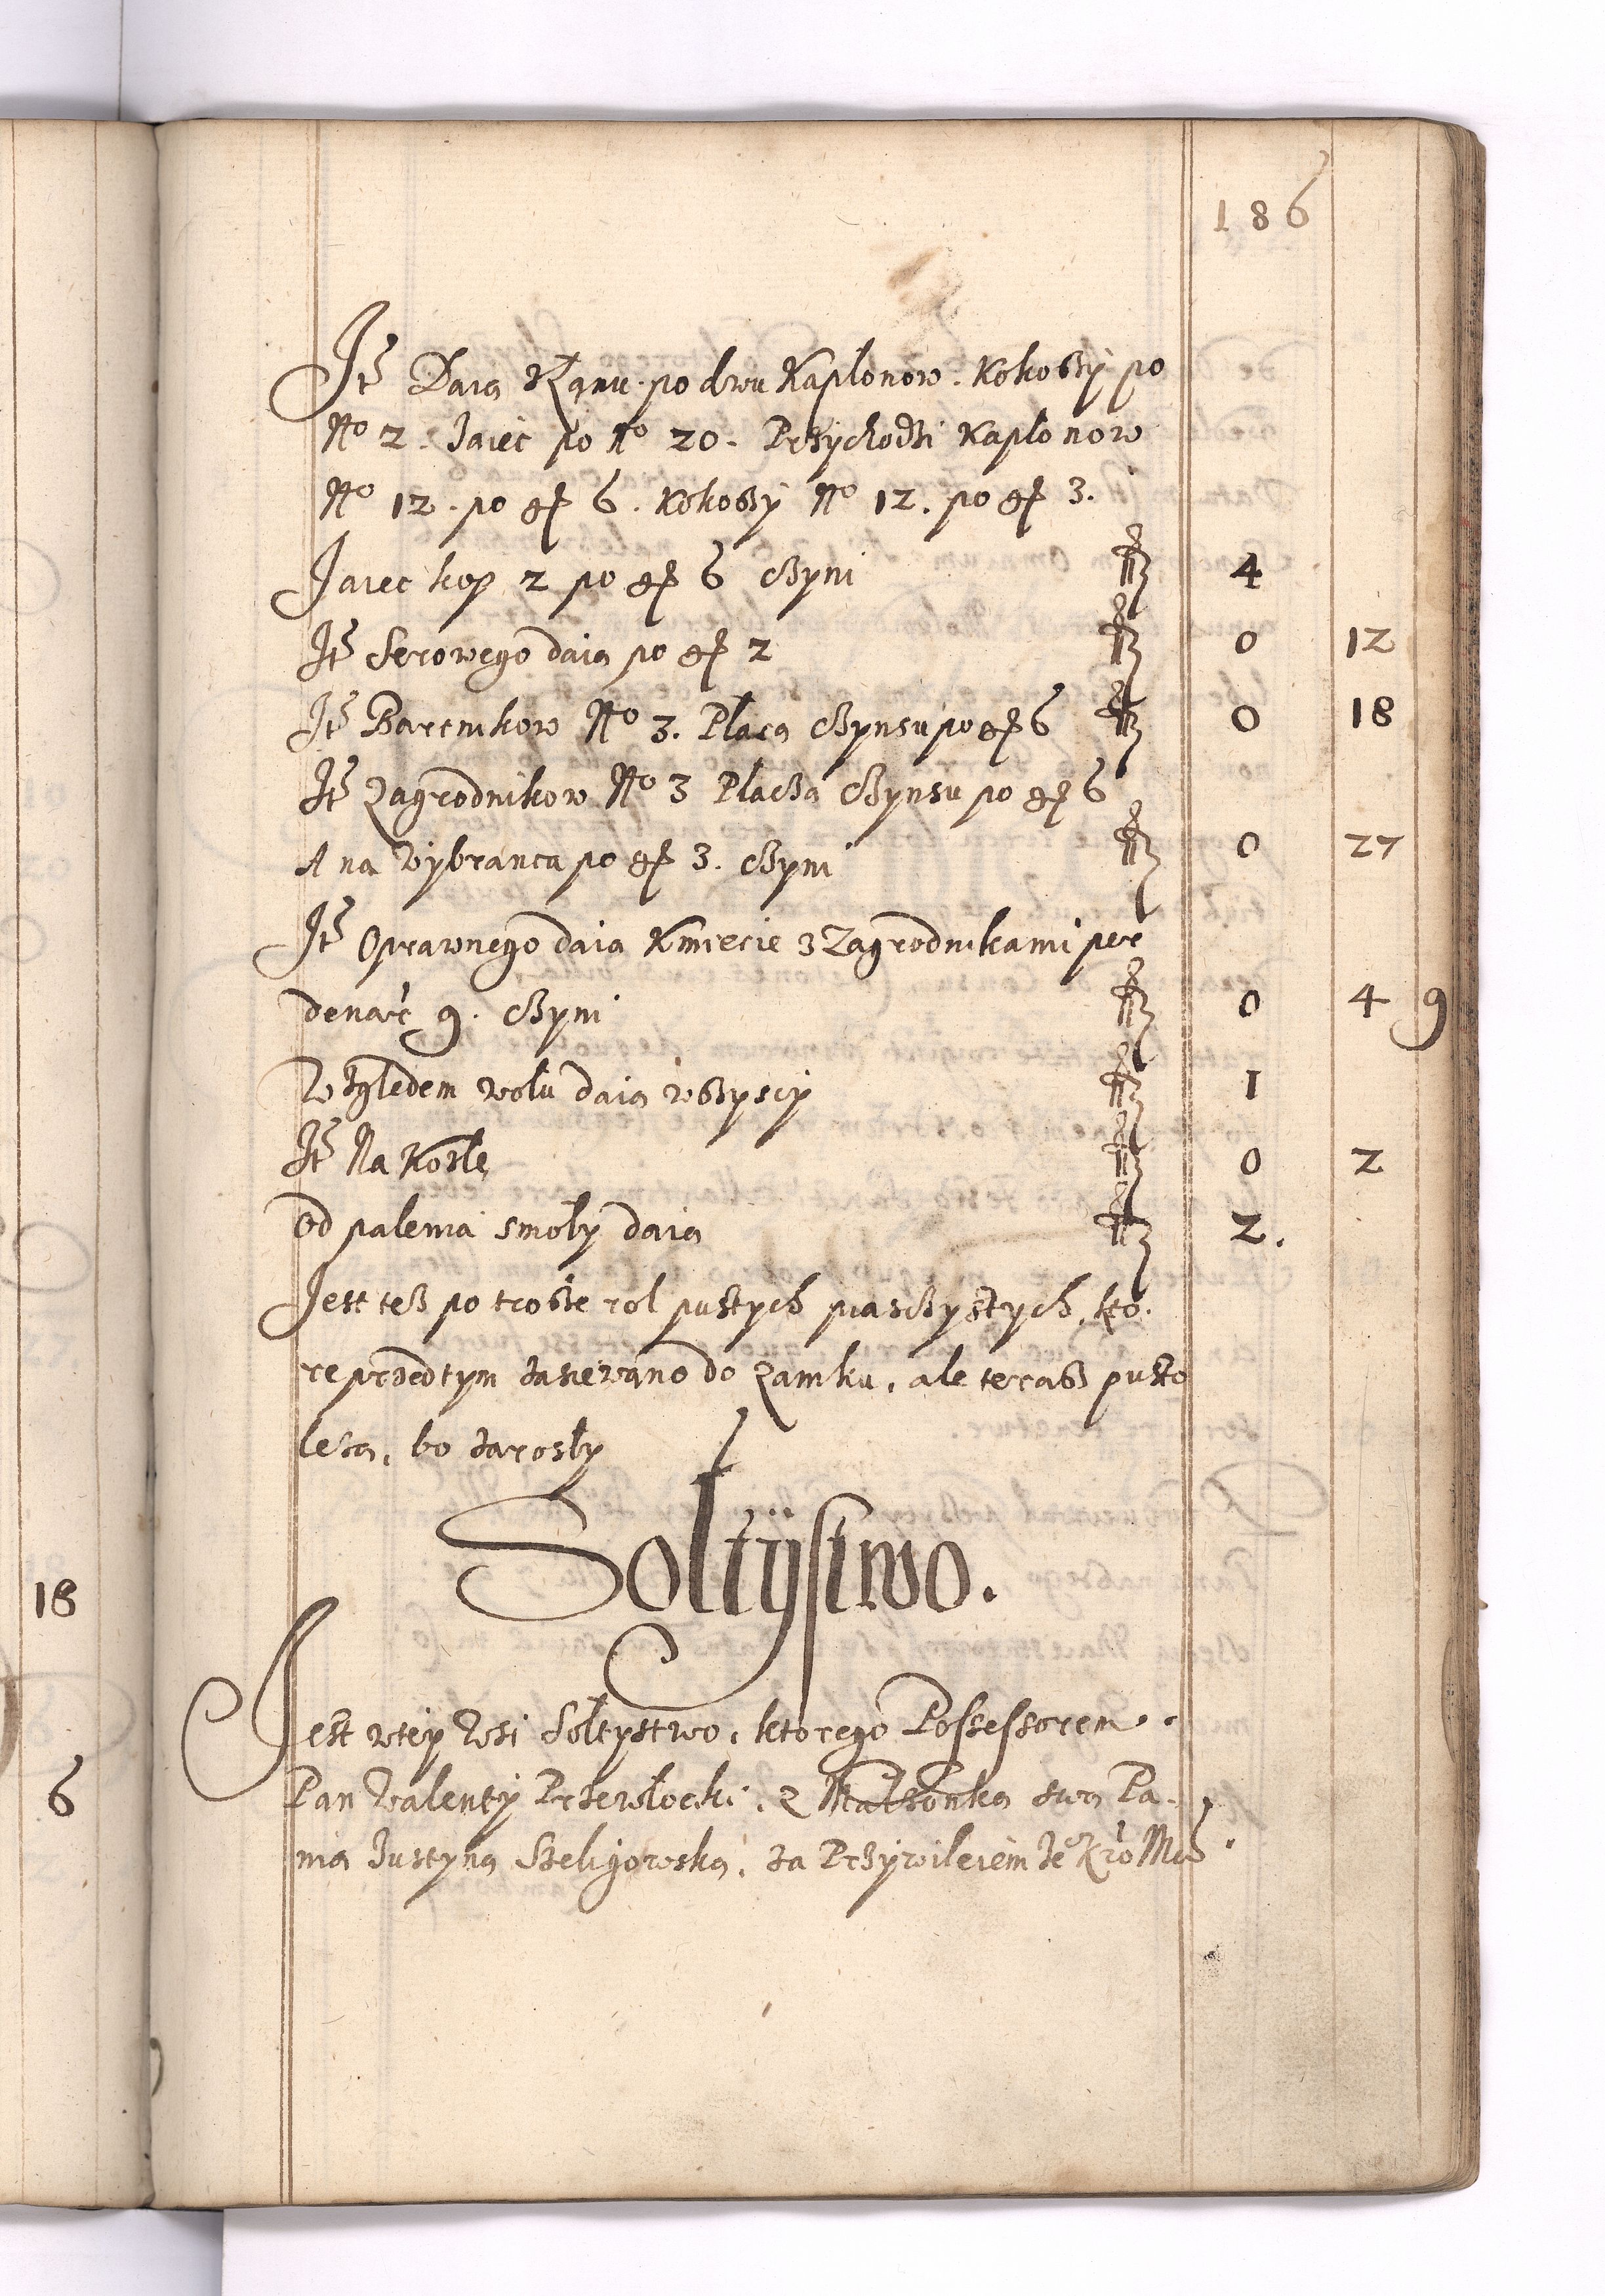 186
Itē Daią z Łanu po dwu Kapłonow. Kokoßy po
No 2. Jaiec po No 20. Przychodzi Kapłonow
No 12. po gr 6. Kokoßy No 12. po gr 3.
Jaiec kop 2 po gr 6 czyni fl 4
Itē Serowego daią po gr 2 fl 0 12
Itē Bartnikow No 3. Płacą Czynsu po gr 6 fl 0 18
Itē Zagrodnikow No 3 Płaczą Czynsu po gr 6
A na Wybranca po gr 3. czyni fl 0 27
Itē Oprawnego daią Kmiecie z Zagrodnikami per
denar 9. czyni fl 0 4 9
Względem wołu daią wßyscy fl 1
Itē Na Kozłę fl 0 2
Od palenia smoły daią fl 2.
Jest teß po troßze rol pustych piasczystych, kto.
re przedtym zasiewano do Zamku, ale teraß pusto
leżą, bo zarosły
Sołtÿstwo.
Jest w tey Wsi Sołtystwo, ktorego Possessorem.
Pan Walenty Przewłocki, z Małżonką swą Pa.
nią Justyną Szeligowską, za Przywileiem Je° Kro Mci.
18
6